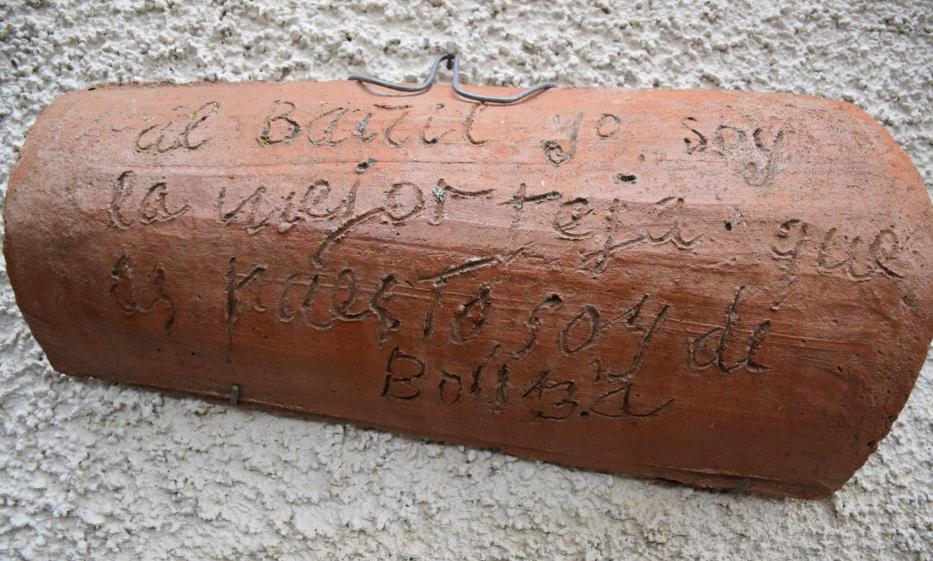 al Bañil yo soy
la mejor teja que
as puesto soy de
Bouza